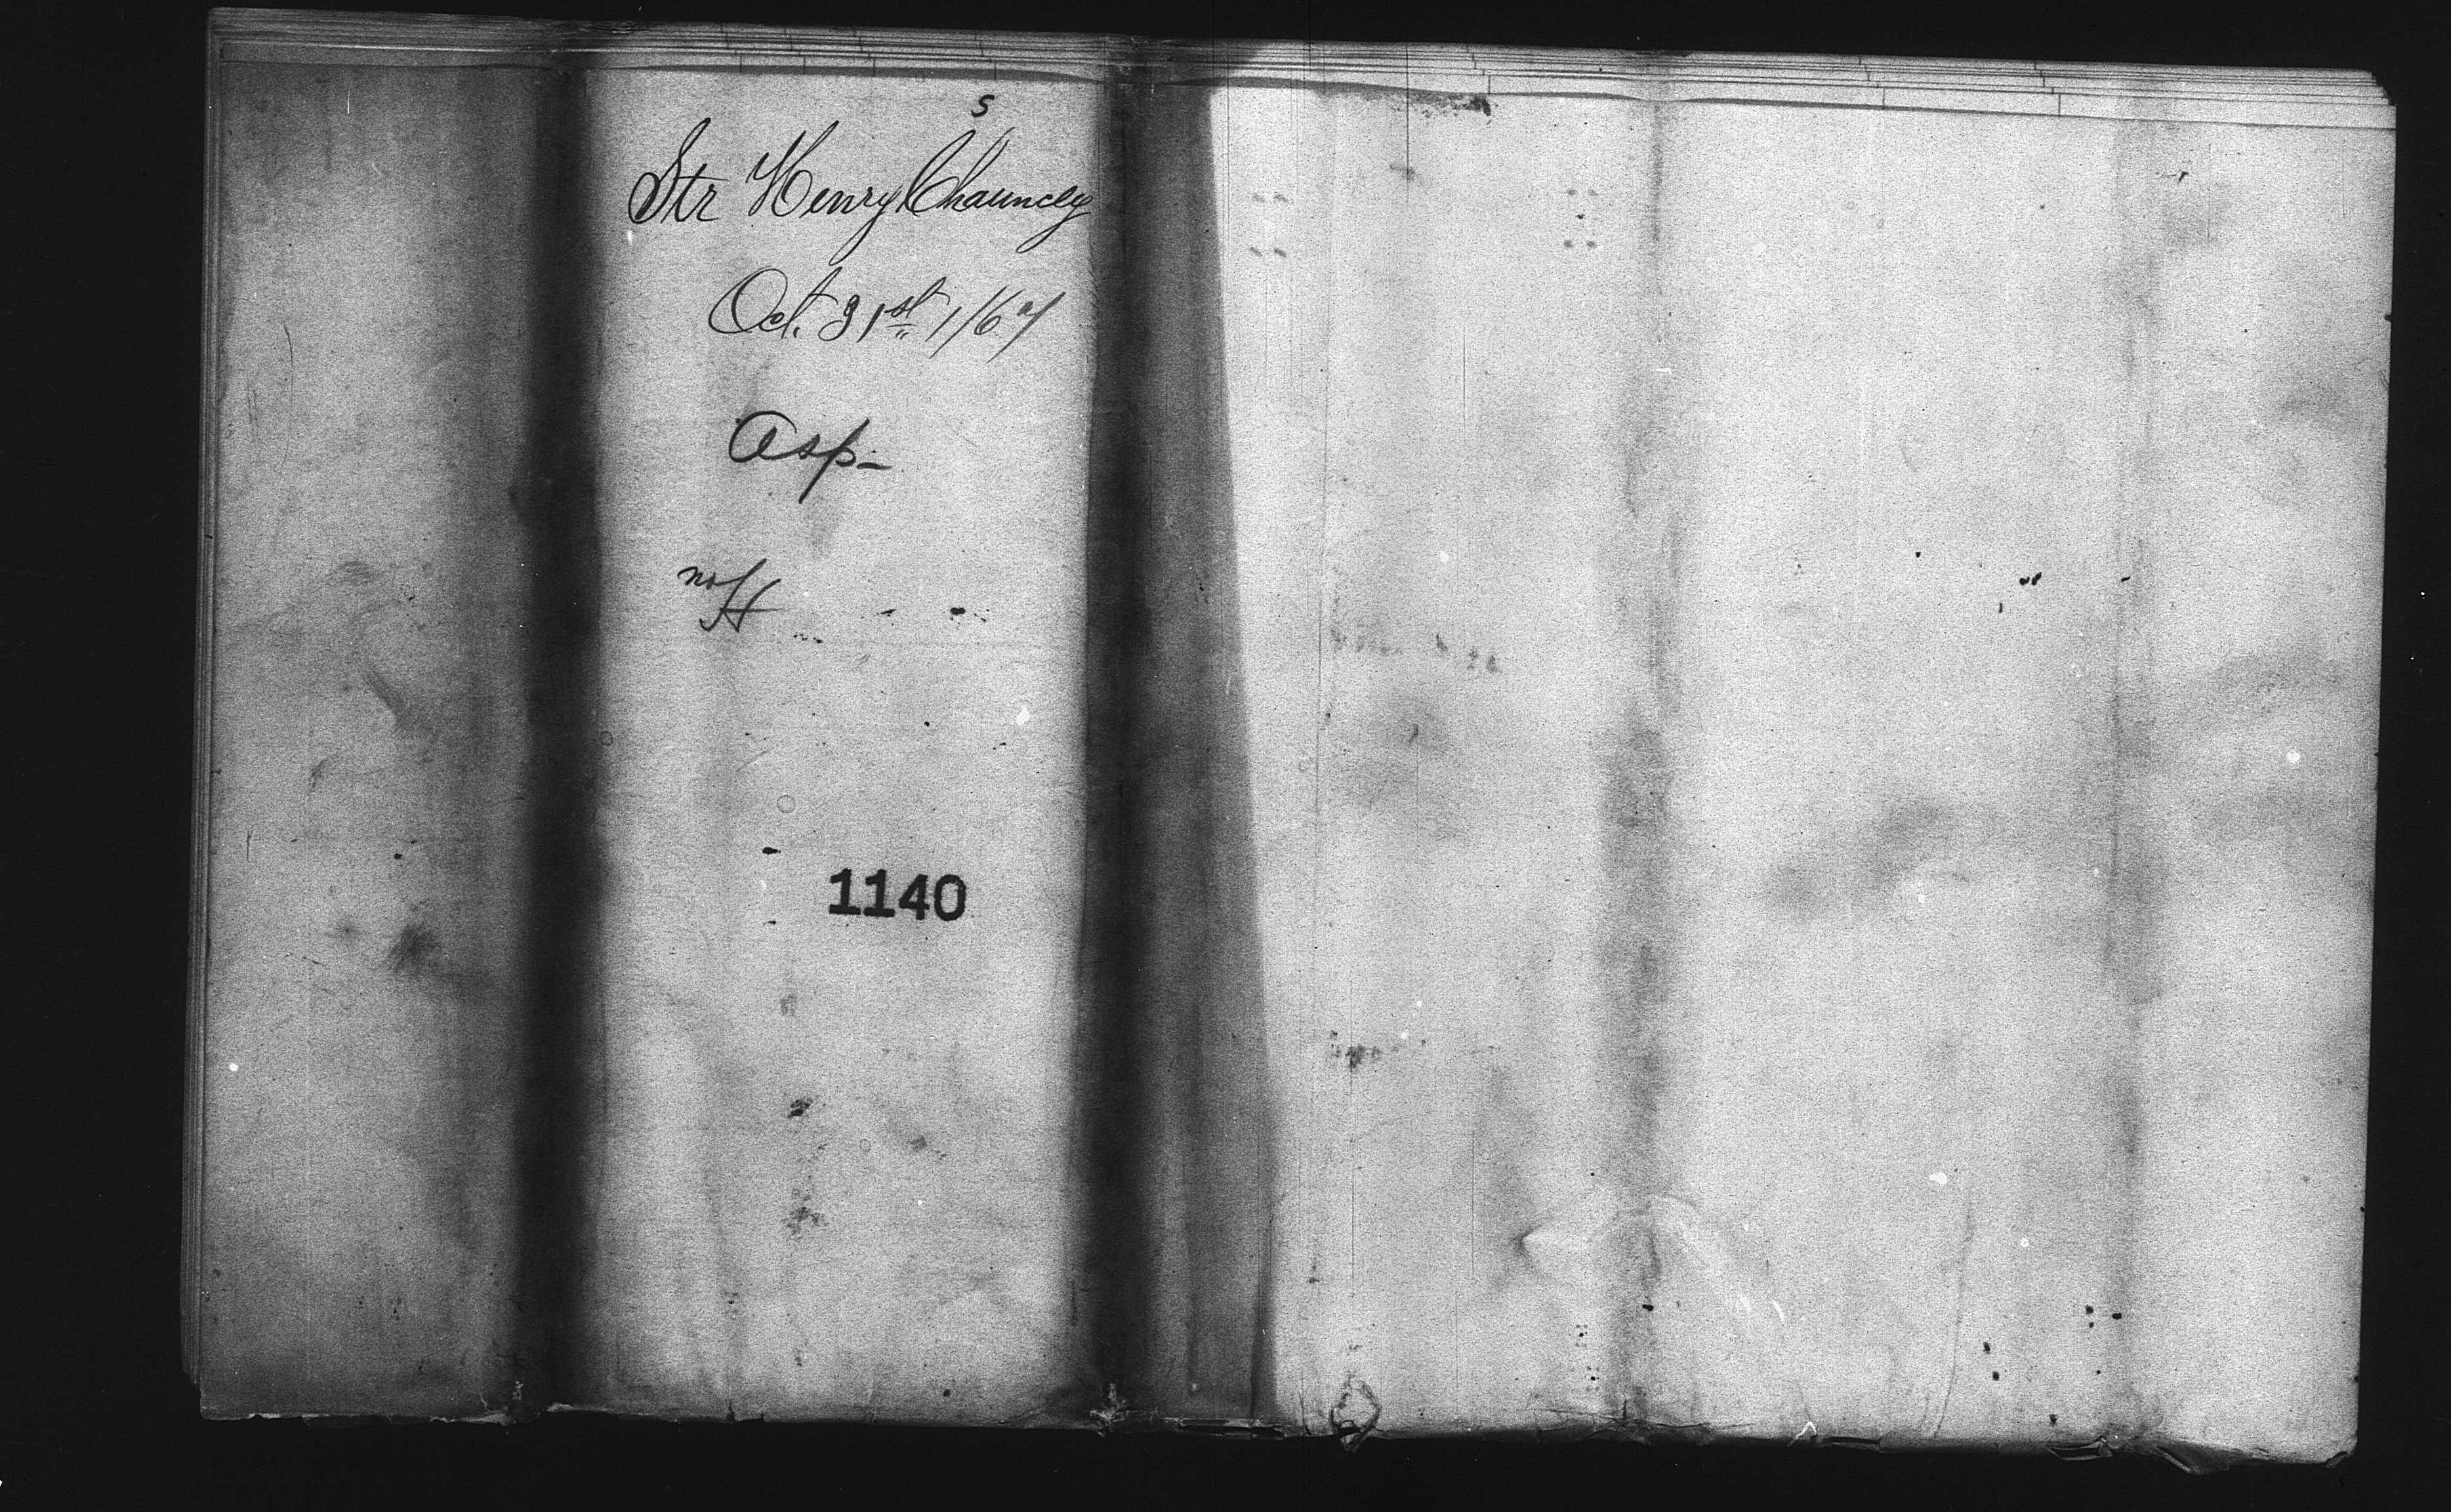 s
Str Henry Chauncey
Oct. 31st 1/67
Asp-
1140